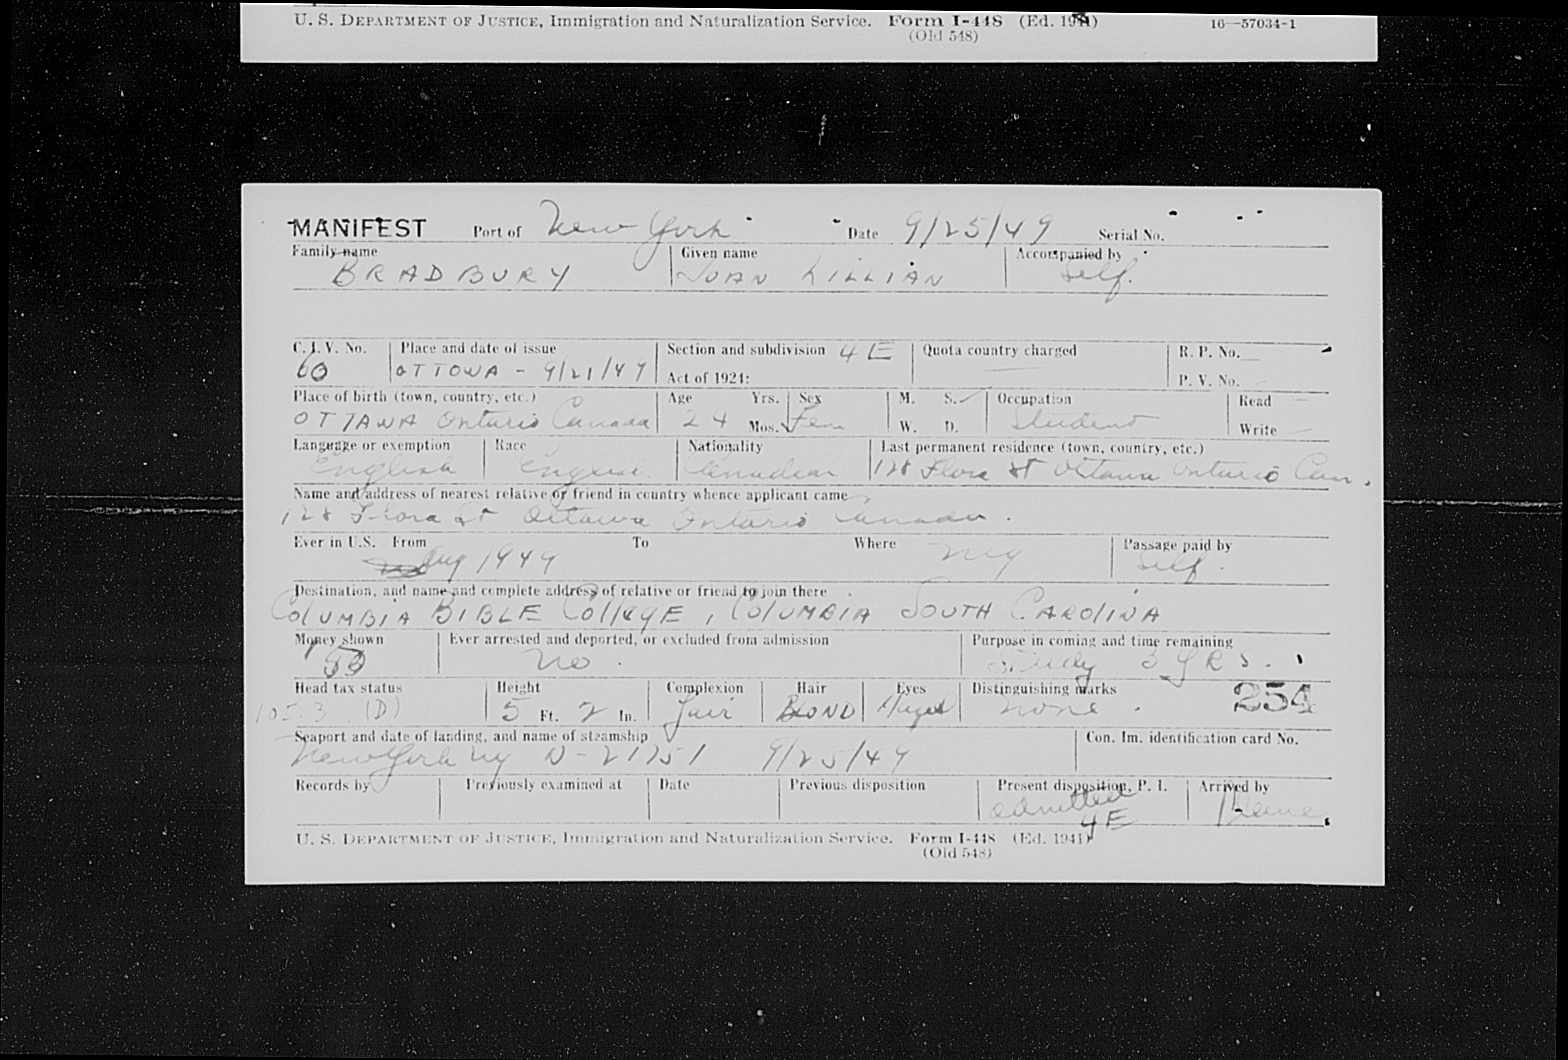 U. S. DEPARTMENT OF JUSTICE, Immigration and Naturalization Service. Form I-448 (Ed. 1941) 16—57034-1
(Old 548)
MANIFEST Port of New York Date 9/25/49 Serial No.
Family name Given name Accompanied by
BRADBURY JOAN LILLIAN Self.
C. I. V. No. Place and date of issue Section and subdivision 4E Quota country charged R. P. No.
60 OTTOWA - 9/21/49 Act of 1924: P. V. No.
Place of birth (town, country, etc.) Age Yrs. Sex M. S. ✓ Occupation Read
OTTAWA Ontario Canada 24 Mos. Fem W. D. Student Write
Language or exemption Race Nationality Last permanent residence (town, country, etc.)
English English Canadian 128 Flora St Ottawa Ontario Can.
Name and address of nearest relative or friend in country whence applicant came
128 Flora St Ottawa Ontario Canada.
Ever in U.S. From To Where NY Passage paid by
Aug 1949 Self.
Destination, and name and complete address of relative or friend to join there
COlUMBIA BIBLE COllEgE, COlUMBIA SOUTH CAROlINA
Money shown Ever arrested and deported, or excluded from admission Purpose in coming and time remaining
No. Study 3 YRS.
Head tax status Height Complexion Hair Eyes Distinguishing marks 254
(D) 5 Ft. 2 In. Fair BLOND Hazel none.
Seaport and date of landing, and name of steamship Con. Im. identification card No.
New York NY N-21751 9/25/49
Records by Previously examined at Date Previous disposition Present disposition, P. I. Arrived by
admitted 4E
U. S. DEPARTMENT OF JUSTICE, Immigration and Naturalization Service. Form I-448 (Ed. 1941)
(Old 548)